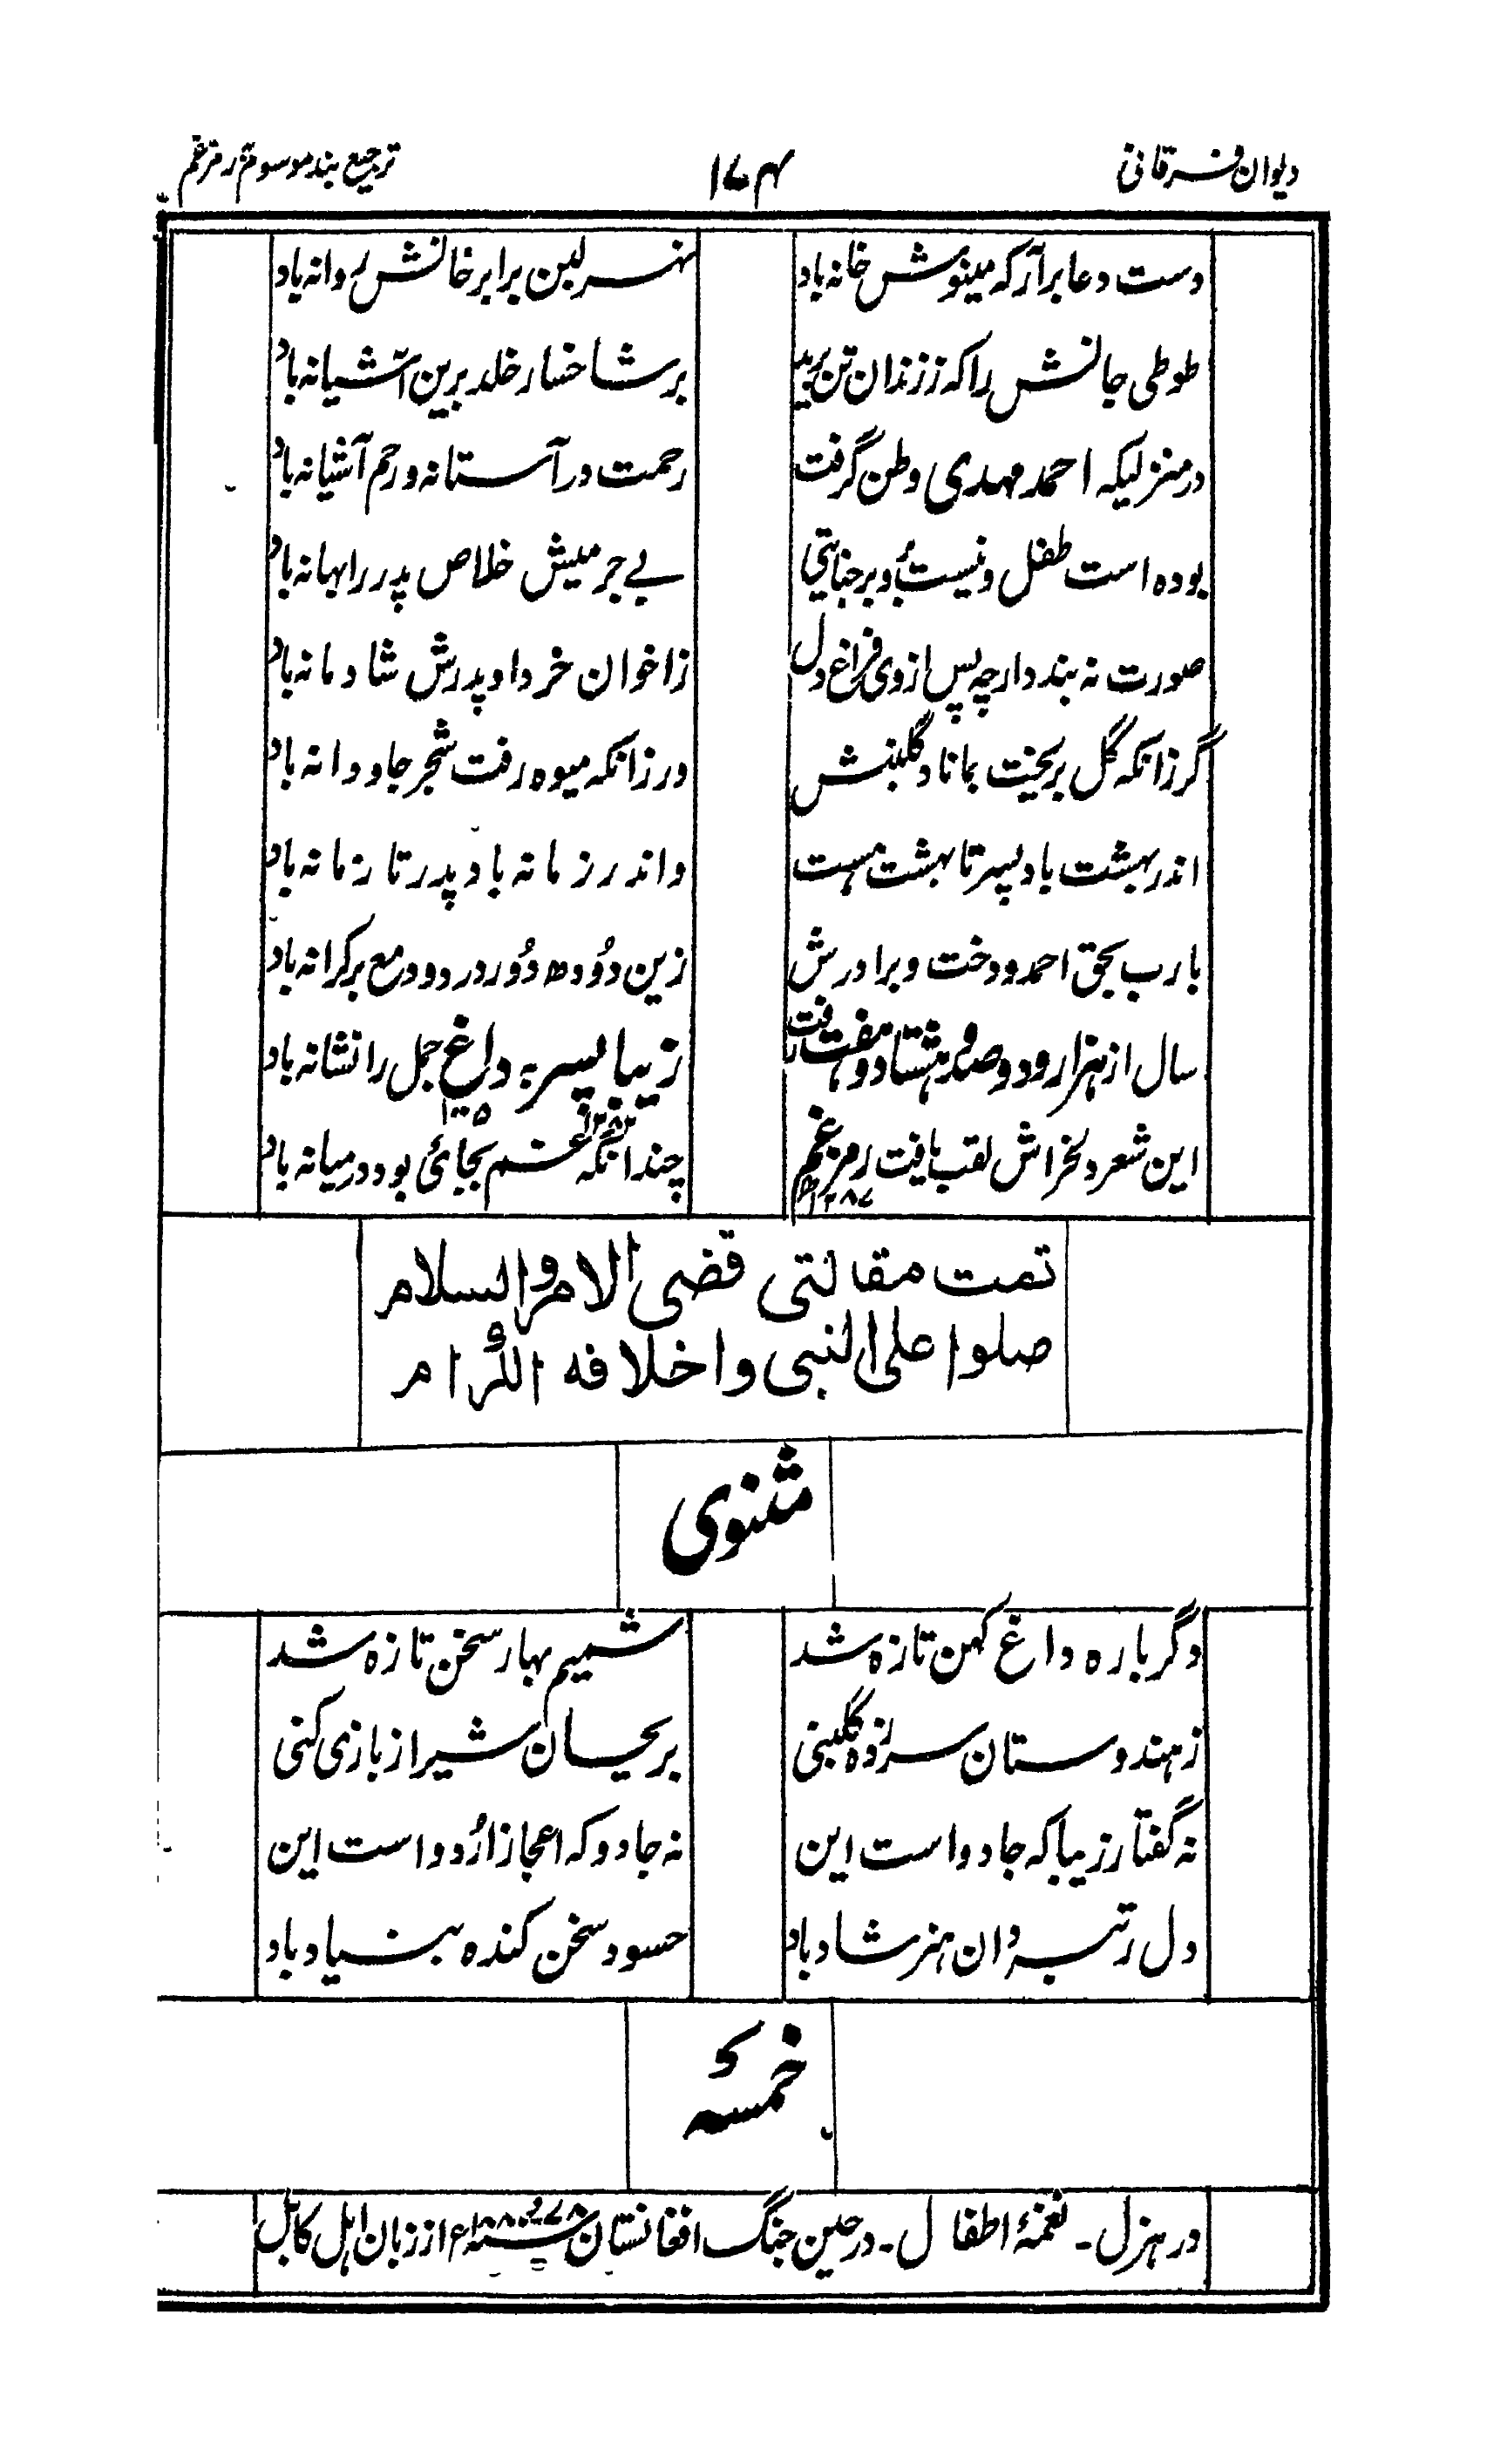 دیوان فرقانی ۱۷۴ ترجیع بند موسوم برمز غم
دست دعا بر آر که مینوش خانه باد نهر لبن برابر خانش روانه باد
طوطی جانش را که ز زندان تن پرید بر شاخسار خلد برین آشیانه باد
در منزلیکه احمد مهدی وطن گرفت رحمت در آستانه و رحم آشیانه باد
بوده است طفل و نیست برو بر جنایتی بے جرمیش خلاص پدر را بهانه باد
صورت نه بندد ارچه پس از وی فراغ دل ز اخوان خرد او پدرش شادمانه باد
گر زانکه گل بریخت بماناد گلبنش ور زانکه میوه رفت شجر جاودانه باد
اندر بهشت باد پسر تا بهشت هست واندر زمانه باد پدر تا زمانه باد
یارب بحق احمد و دخت و برادرش زین دُوده دُور درد و دمع بر کرانه باد
سال از هزار و دو صد و هشتاد و هفت رفت زیبا پسر به داغ جمل را نشانه باد
۱۰۰۵
این شعر دلخراش لقب یافت رمز غم چندانکه غم بجائ بود در میانه باد
۱۲۸۷
تمت مقالتی قضی الامر والسلام
صلوا علی النبی واخلافه الکرام
مثنوی
دگر باره داغ کهن تازه شد شمیم بهار سخن تازه شد
ز هندوستان سر زده گلبنی بریحان شیراز بازی کنی
نه گفتار زیبا که جادو است این نه جادو که اعجاز اُردو است این
دل رتبه دان هنر شاد باد حسود سخن کنده بنیاد باد
خمسهٔ
در هزل ـ نغمهٔ اطفال ـ در حین جنگ افغانستان ۷۸ و ۱۸۸۰ سنه ء از زبان اہل کابل